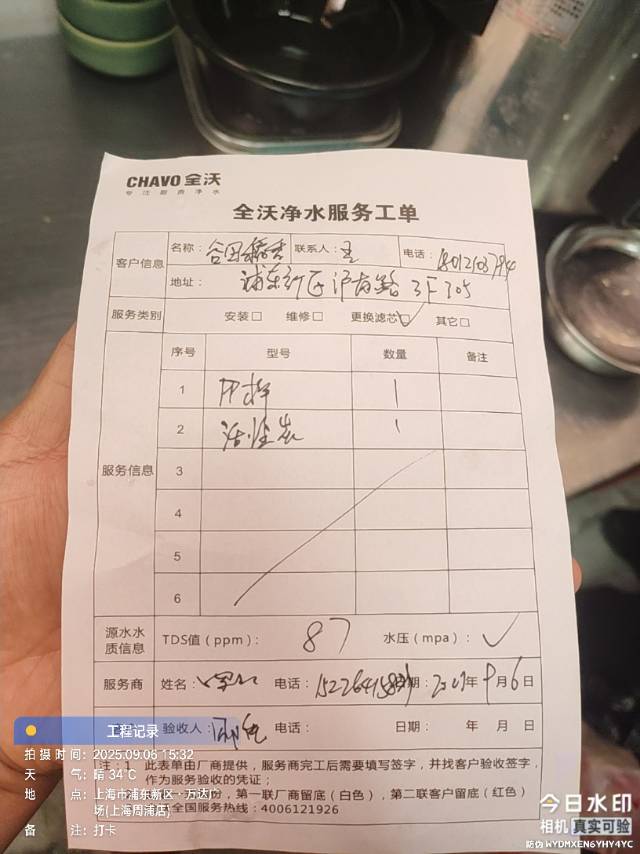 CHAVO 全沃
专注厨房净水
全沃净水服务工单
客户信息 名称： 谷田稻香 联系人：王 电话：
地址： 浦东新区沪南路 3F 305
服务类别 安装□ 维修□ 更换滤芯□✓ 其它□
服务信息 序号 型号 数量 备注
1 PP棉 1
2 活性炭 1
3
4
5
6
源水水质信息 TDS值（ppm）： 87 水压（mpa）： ✓
服务商 姓名： 电话： 日期： 年 9月6日
验收人： 电话： 日期： 年 月 日
注：1、此表单由厂商提供，服务商完工后需要填写签字，并找客户验收签字，
作为服务验收的凭证；
份，第一联厂商留底（白色），第二联客户留底（红色）
全国服务热线：4006121926
工程记录
拍摄时间：2025.09.06 15:32
天 气：晴 34℃
地 点：上海市浦东新区·万达广
场(上海周浦店)
备 注：打卡
今日水印
相机 真实可验
防伪 WYDMXEN6YHY4YC